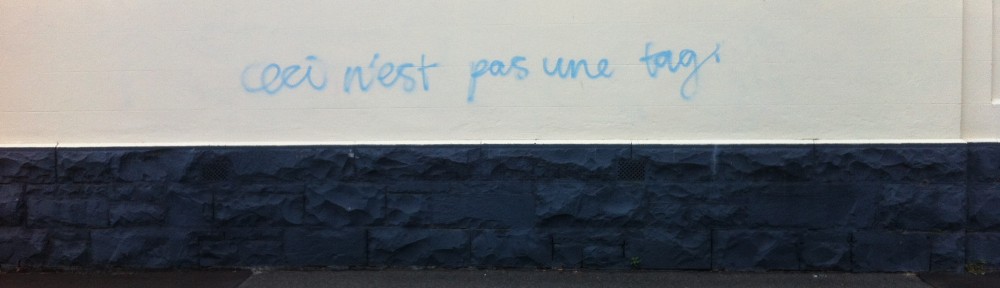 ceci n'est pas une tag